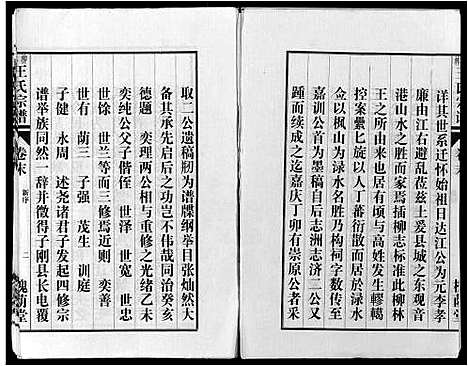 詳其世系迁怀始祖日达江公为元李孝
廉由江右避乱莅兹土爰县城之东观音
港山水之胜而家焉插柳志标准此柳林
王之所由来也厥后发生age
控案纍匕旋以人丁蕃衍散而居於渌水
佥以枫山为渌水名胜乃构祠字数传有
嘉训公首为墨稿自后志洲志济二公又
踵而续成之迄嘉庆丁卯有崇原公者
王氏宗谱
卷末
新序
二
槐荫堂
取二公遗稿牣为谱牒纲举目张灿然大
备其承先启后之功岂不伟哉同治癸亥
德题 奕理两公相与重修之光绪乙未
奕纯公父子偕侄 世泽 世宽 世忠
世馀 世兰等而三修犹则 奕善
世有 荫三 子强 茂生 训庭
子健 永周 述尧诸君子发起四修宗
谱举族同然一辞并徵得子刚县长电覆